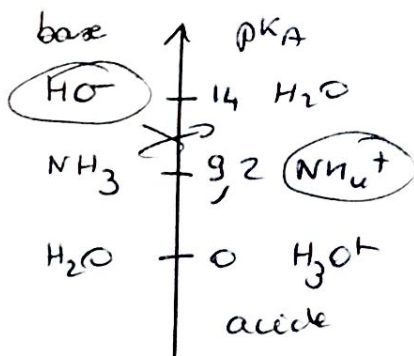 base pKA
HO⁻ 14 H₂O
NH₃ 9,2 NH₄⁺
H₂O 0 H₃O⁺
acide